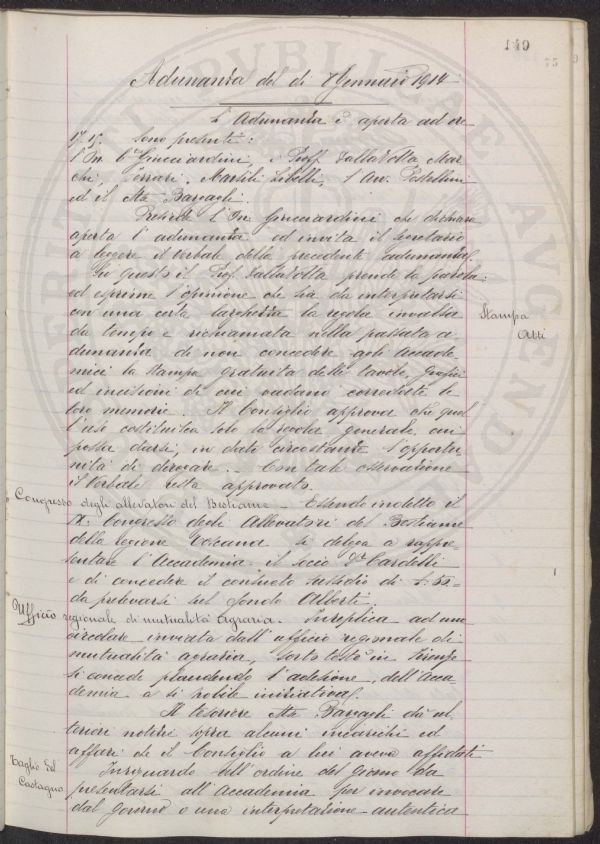 149
75
Adunanza del dì 8 Gennaio 1914
L'Adunanza è aperta ad ore
17.15. Sono presenti:
l'On. Guicciardini, i Proff. Dalla Volta, Mar
chi, Ferrari, Martili Libelli, l'Avv. Pestellini
ed il March. Bargagli.
Presiede l'On. Guicciardini che dichiara
aperta l'adunanza ed invita il Segretario
a leggere il verbale della precedente adunanza.
In questo il Prof. Dalla Volta prende la parola
ed esprime l'opinione che sia da interpretarsi
con una certa larghezza la regola invalsa
Stampa
Atti
da tempo e richiamata nella passata a
dunanza di non concedere agli Accade
mici la stampa gratuita delle tavole, grafici
ed incisioni di cui vadano corredate le
loro memorie. Il Consiglio approva che quel
l'uso costituisca solo la regola generale cui
possa darsi, in date circostanze l'opportu
nità di derogare. Con tale osservazione
il verbale resta approvato.
Congresso degli allevatori del Bestiame - Essendo indetto il
IX. Congresso degli Allevatori del Bestiame
della regione Toscana si delega a rappre-
sentare l'Accademia il socio Cardelli
e di concedere il consueto sussidio di
da prelevarsi sul fondo Alberti.
Ufficio regionale di mutualità Agraria. In replica ad una
circolare inviata dall'ufficio regionale di
mutualità agraria, sorto testè in Firenze
si concede plaudendo l'adesione dell'Acca
demia a sì nobile iniziativa.
Il tesoriere March. Bargagli dà ul
teriori notizie sopra alcuni incarichi ed
affari che il Consiglio a lui aveva affidati
Taglio del
Castagno
In riguardo all'ordine del giorno da
presentarsi all'Accademia per invocare
dal governo o una interpretazione autentica